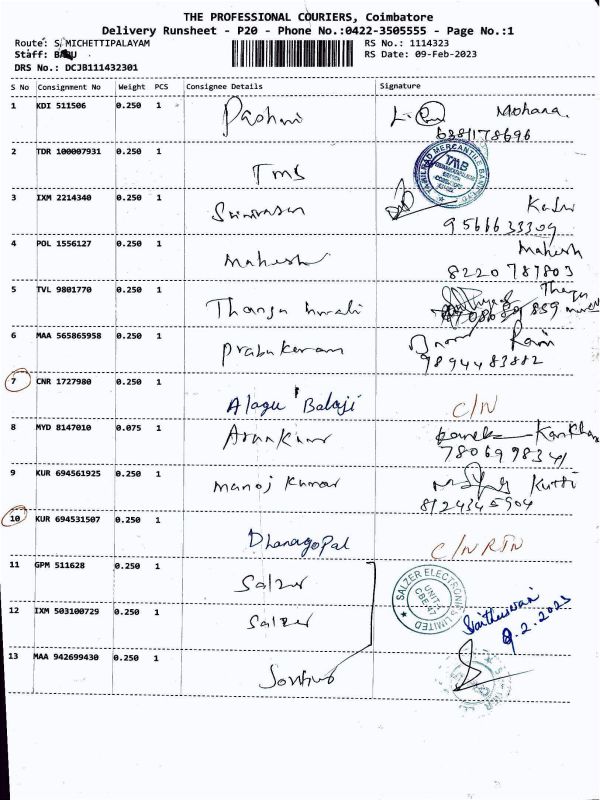 THE PROFESSIONAL COURIERS, Coimbatore
Delivery Runsheet - P20 - Phone No.:0422-3505555 - Page No.:1
Route: S MICHETTIPALAYAM
RS No.: 1114323
Staff: BABU
RS Date: 09-Feb-2023
DRS No.: DCJB111432301
S No Consignment No Weight PCS Consignee Details Signature
1 KDI 511506 0.250 1 Mohana
6381178696
2 TDR 100007931 0.250 1 TMB
TAMILNAD MERCANTILE BANK LTD
TMB
3 IXM 2214340 0.250 1 Srinivasan
9566633309
4 POL 1556127 0.250 1 Mahesh Mahesh
8220787803
5 TVL 9801770 0.250 1
6 MAA 565865958 0.250 1 Prabukaram Ram
9894483882
7 CNR 1727980 0.250 1 Alagu Balaji C/N
8 MYD 8147010 0.075 1 Arunkumar
7806998341
9 KUR 694561925 0.250 1 Manoj Kumar Kutti
8124345904
10 KUR 694531507 0.250 1 Dhanagopal C/N RTN
11 GPM 511628 0.250 1 Salzer
SALZER ELECTRONICS LIMITED
UNIT-1
CBE-47
12 IXM 503100729 0.250 1 Salzer
9.2.2023
13 MAA 942699430 0.250 1